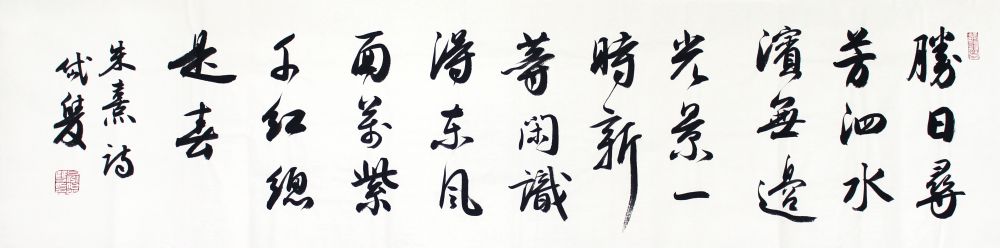 勝日尋
芳泗水
濱無邊
光景一
時新
等閑識
得東風
面萬紫
千紅總
是春
朱熹詩